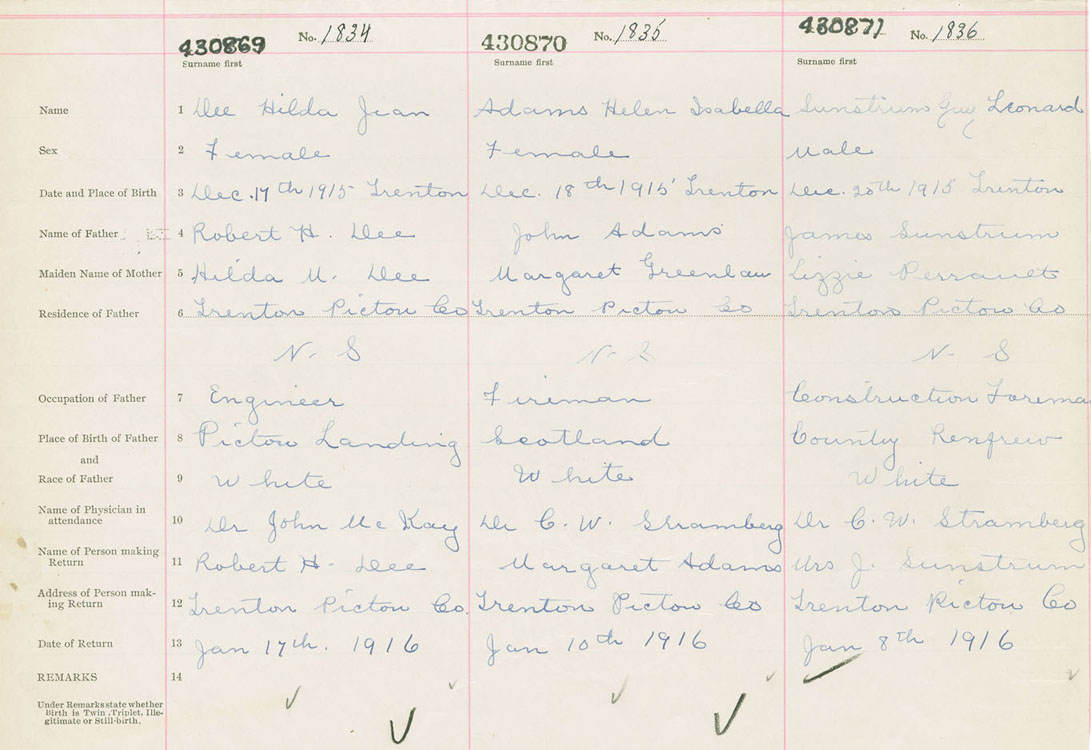 430869 No. 1834 430870 No. 1835 430871 No. 1836
Surname first Surname first Surname first
Name 1 Dee Hilda Jean Adams Helen Isabella Sunstrum Guy Leonard
Sex 2 Female Female Male
Date and Place of Birth 3 Dec. 17th 1915 Trenton Dec. 18th 1915 Trenton Dec. 20th 1915 Trenton
Name of Father 4 Robert H. Dee John Adams James Sunstrum
Maiden Name of Mother 5 Hilda M. Dee Margaret Greenlaw Lizzie Perrault
Residence of Father 6 Trenton Pictou Co Trenton Pictou Co Trenton Pictou Co
N. S N. S N. S
Occupation of Father 7 Engineer Fireman Construction Forema
Place of Birth of Father 8 Pictou Landing Scotland County Renfrew
and
Race of Father 9 White White White
Name of Physician in
attendance 10 Dr John McKay Dr C. W. Stramberg Dr C. W. Stramberg
Name of Person making
Return 11 Robert H. Dee Margaret Adams Mrs J. Sunstrum
Address of Person mak-
ing Return 12 Trenton Pictou Co. Trenton Pictou Co Trenton Pictou Co
Date of Return 13 Jan 17th. 1916 Jan 10th 1916 Jan 8th 1916
REMARKS 14
Under Remarks state whether
Birth is Twin, Triplet, Ille-
gitimate or Still-birth.